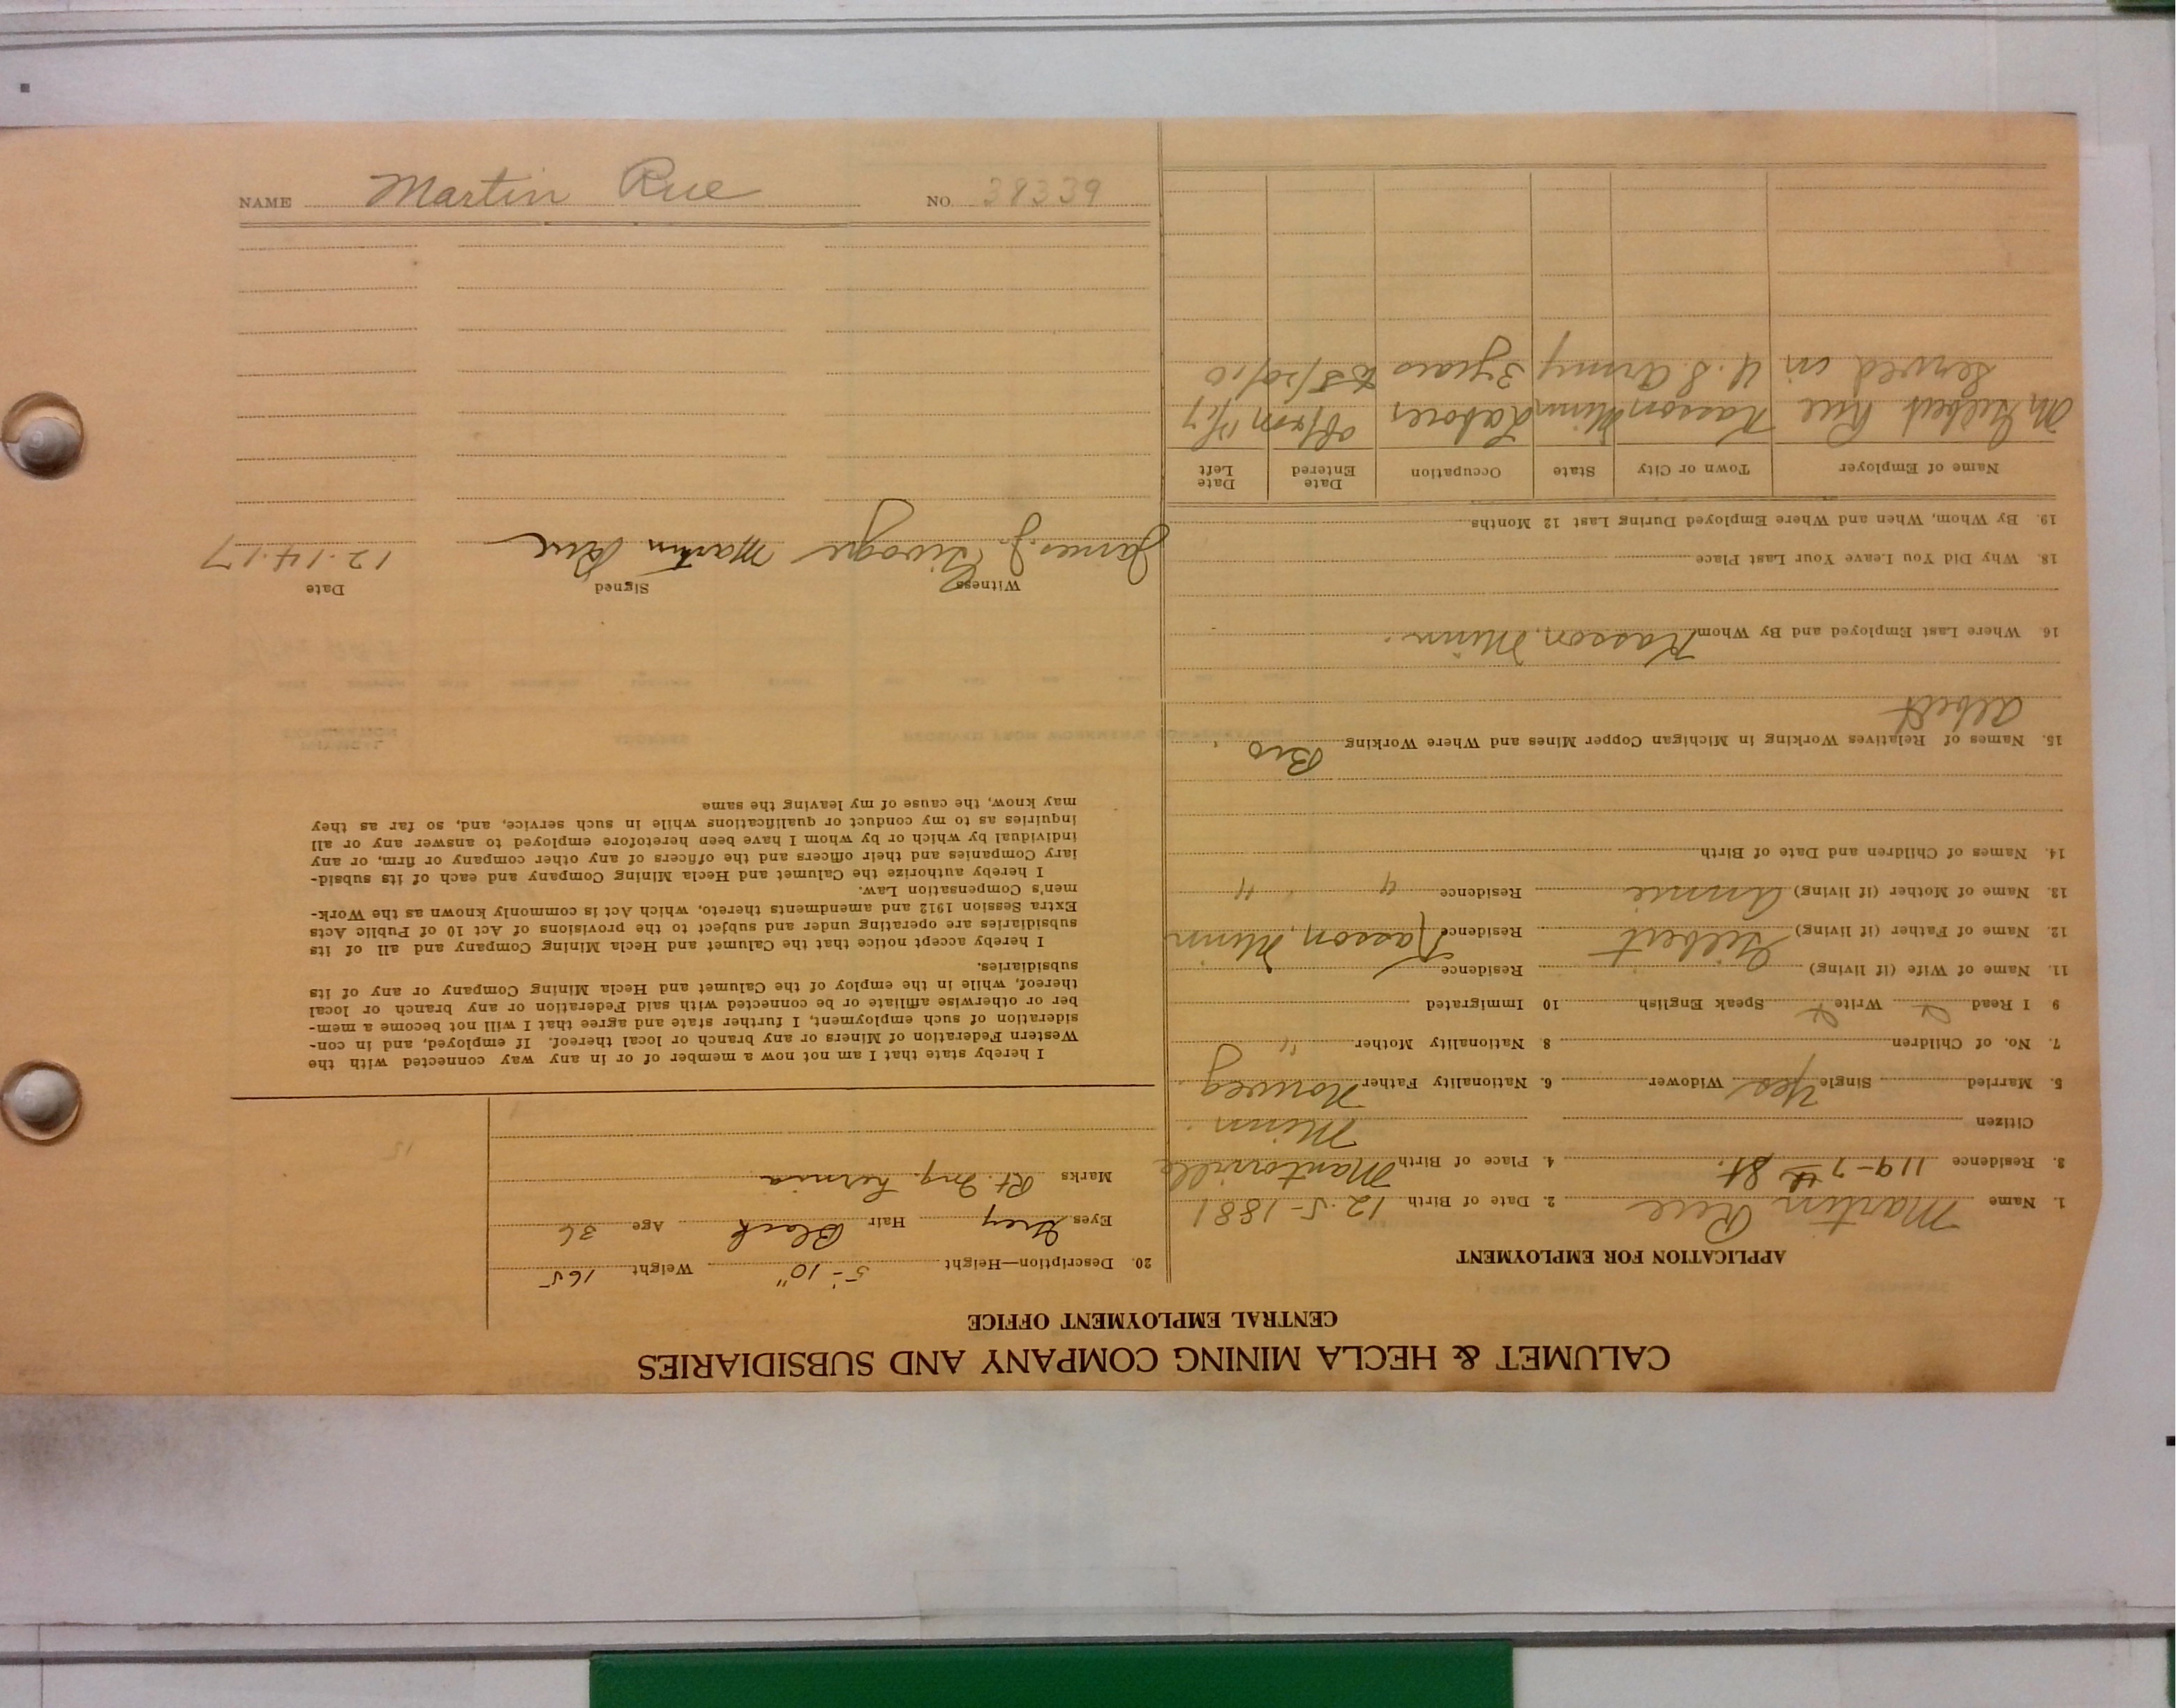 CALUMET & HECLA MINING COMPANY AND SUBSIDIARIES
CENTRAL EMPLOYMENT OFFICE
APPLICATION FOR EMPLOYMENT
1. Name Martin Rue 2. Date of Birth 12-5-1881
3. Residence 119-7th St. 4. Place of Birth Mantorville
Citizen Minn.
5. Married Single Yes Widower 6. Nationality Father Norweg
7. No. of Children 8. Nationality Mother "
9 I Read Write Speak English 10 Immigrated
11. Name of Wife (if living) Residence
12. Name of Father (if living) Gilbert Residence Kasson, Minn
13. Name of Mother (if living) Annie Residence " "
14. Names of Children and Date of Birth
15. Names of Relatives Working in Michigan Copper Mines and Where Working Bro
Albert
16. Where Last Employed and By Whom Kasson, Minn.
18. Why Did You Leave Your Last Place
19. By Whom, When and Where Employed During Last 12 Months
Name of Employer Town or City State Occupation Date Entered Date Left
Gilbert Rue Kasson Minn Labores
Served in U.S. Army 3 years
20. Description—Height 5-10" Weight 165
Eyes Grey Hair Black Age 36
Marks Rt. Ing. hernia
I hereby state that I am not now a member of or in any way connected with the
Western Federation of Miners or any branch or local thereof. If employed, and in con-
sideration of such employment, I further state and agree that I will not become a mem-
ber or otherwise affiliate or be connected with said Federation or any branch or local
thereof, while in the employ of the Calumet and Hecla Mining Company or any of its
subsidiaries.
I hereby accept notice that the Calumet and Hecla Mining Company and all of its
subsidiaries are operating under and subject to the provisions of Act 10 of Public Acts
Extra Session 1912 and amendments thereto, which Act is commonly known as the Work-
men's Compensation Law.
I hereby authorize the Calumet and Hecla Mining Company and each of its subsid-
iary Companies and their officers and the officers of any other company or firm, or any
individual by which or by whom I have been heretofore employed to answer any or all
inquiries as to my conduct or qualifications while in such service, and, so far as they
may know, the cause of my leaving the same
Date Signed Witness
12-14-17 Martin Rue James J.
NAME Martin Rue NO. 38339